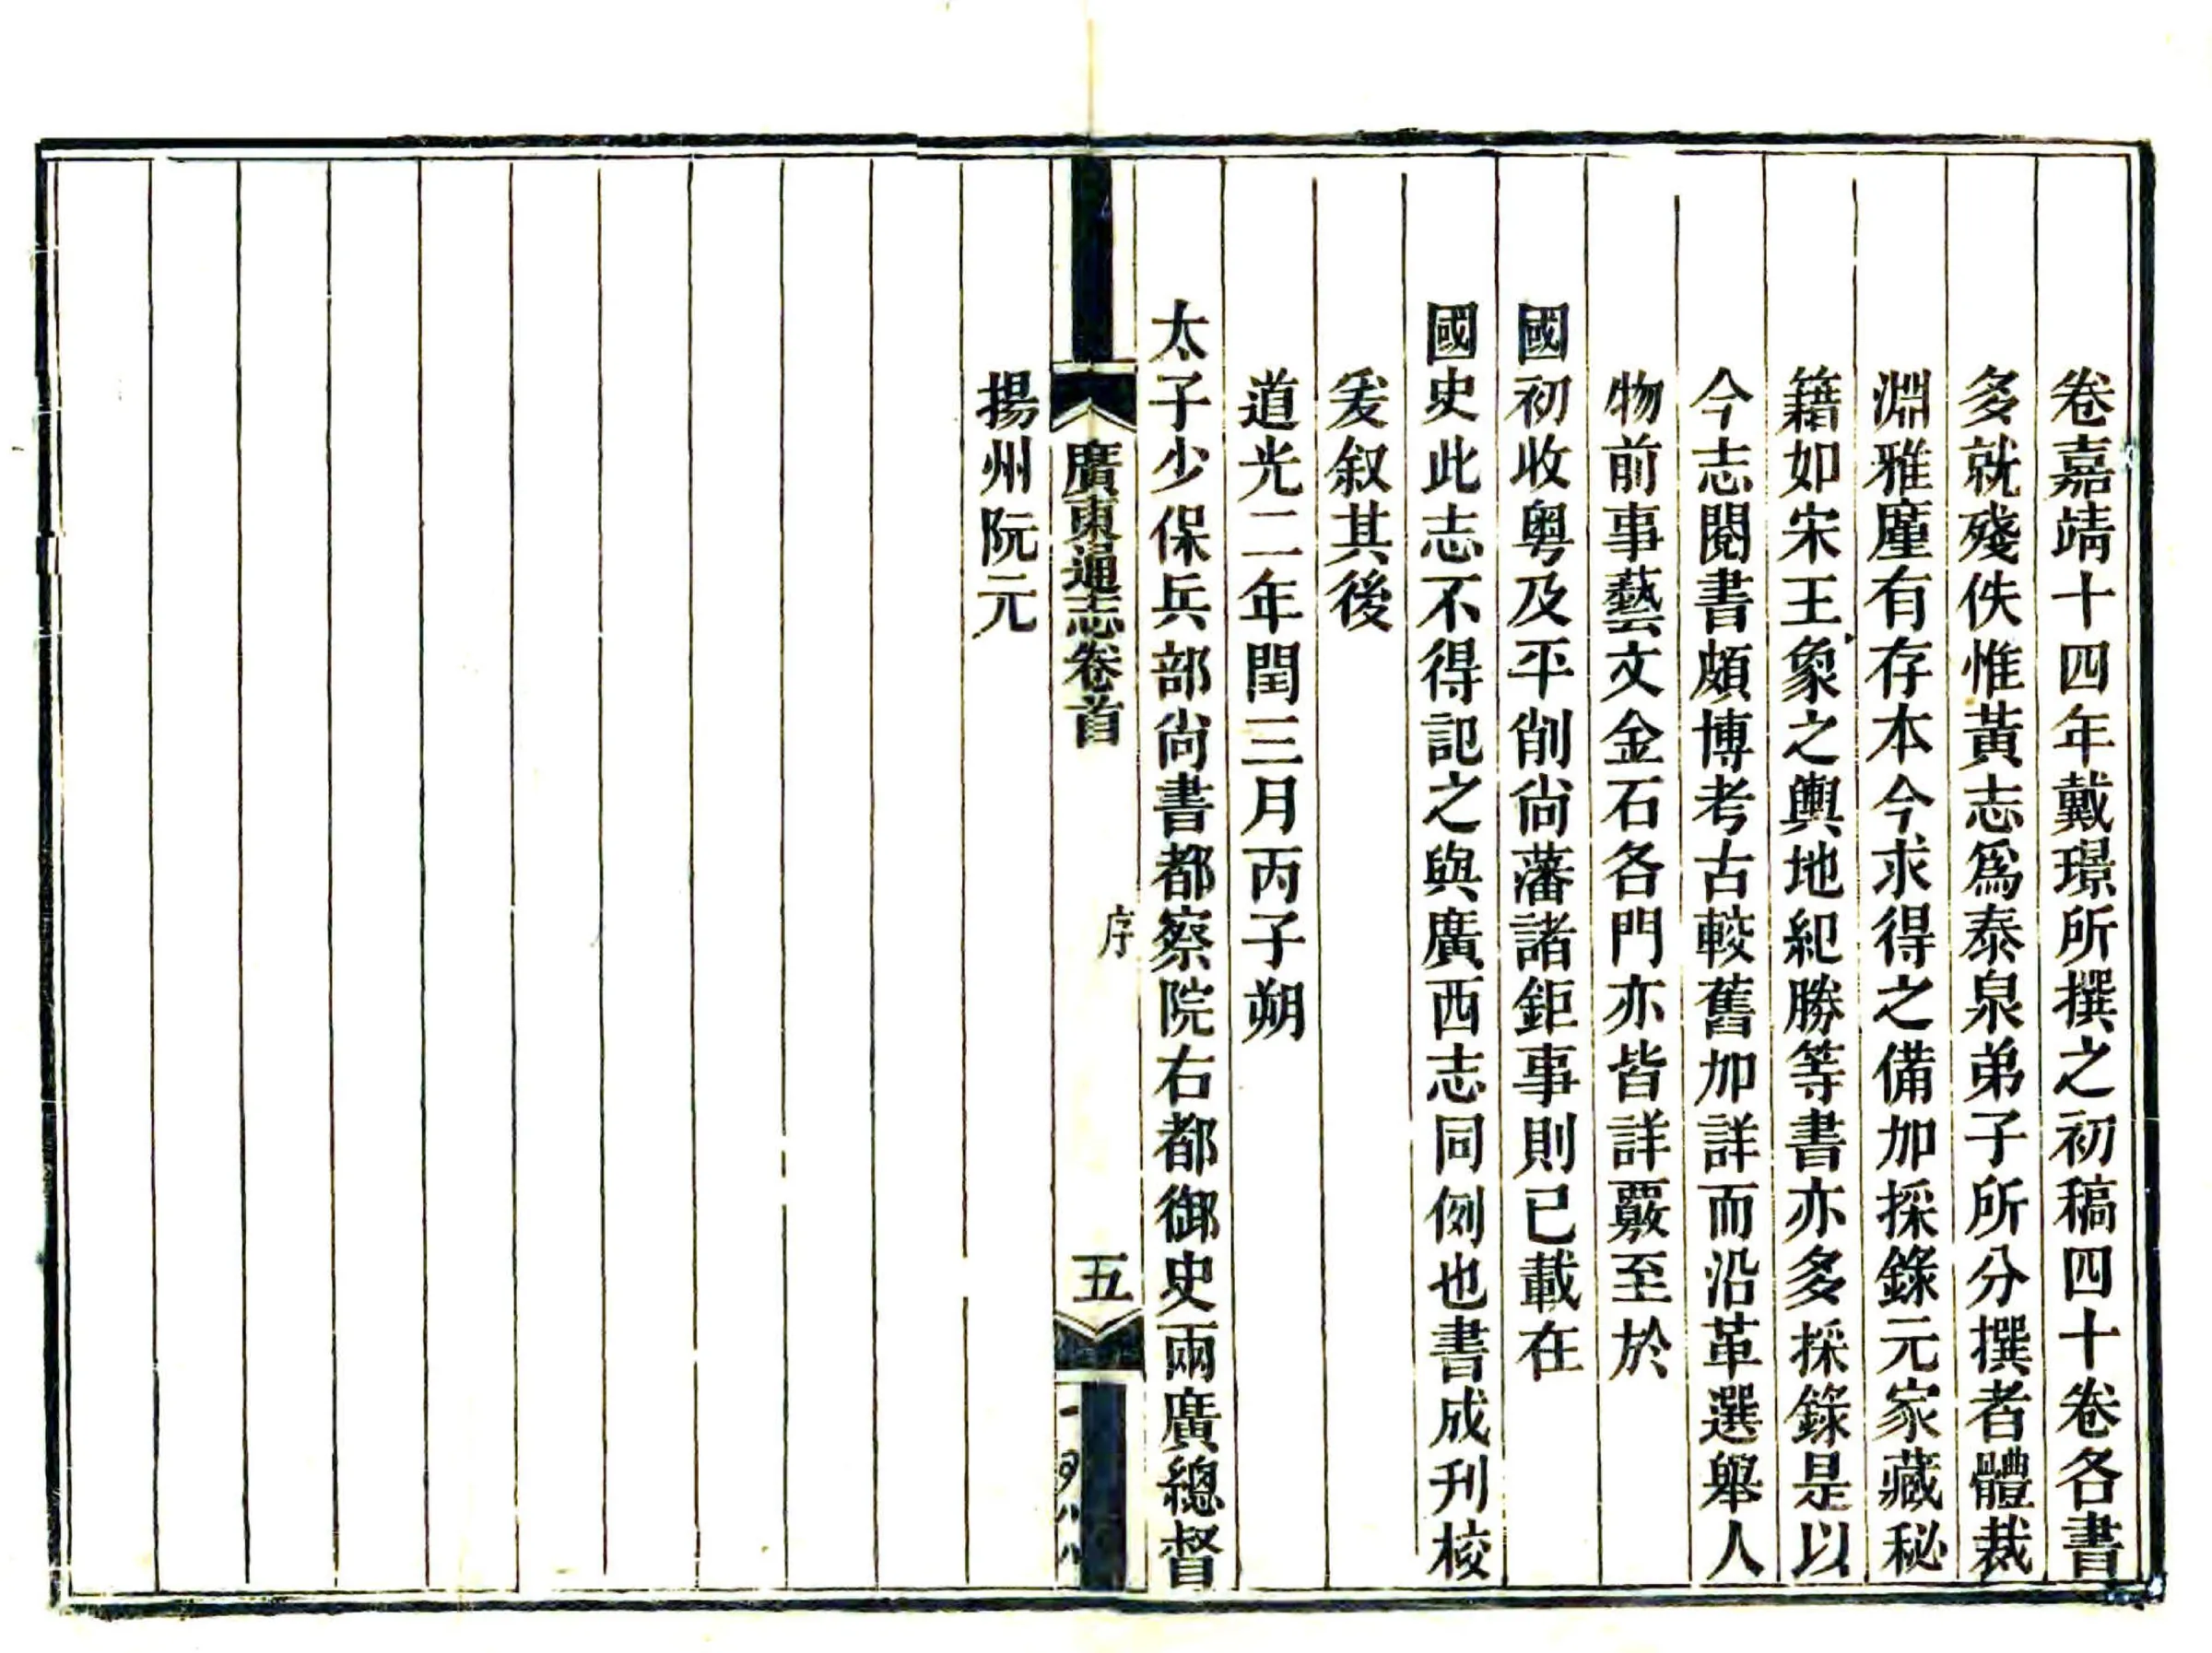 卷嘉靖十四年戴璟所撰之初稿四十卷各書
多就殘佚惟黃志爲泰泉弟子所分撰者體裁
淵雅廑有存本今求得之備加採錄元家藏秘
籍如宋王象之輿地紀勝等書亦多採錄是以
今志閱書頗博考古較舊加詳而沿革選舉人
物前事藝文金石各門亦皆詳覈至於
國初收粤及平削尙藩諸鉅事則已載在
國史此志不得記之與廣西志同例也書成刋校
爰叙其後
道光二年閏三月丙子朔
太子少保兵部尙書都察院右都御史兩廣總督
廣東通志卷首
序
五
揚州阮元